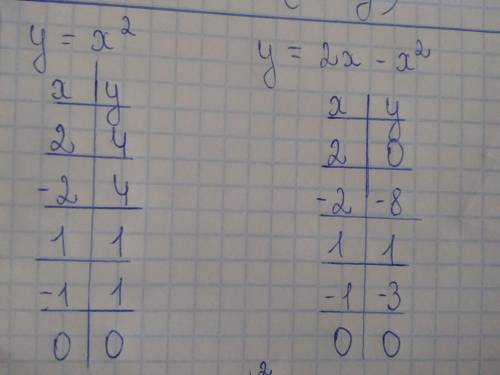 y = x²
x y
2 4
-2 4
1 1
-1 1
0 0
y = 2x - x²
x y
2 0
-2 -8
1 1
-1 -3
0 0
2